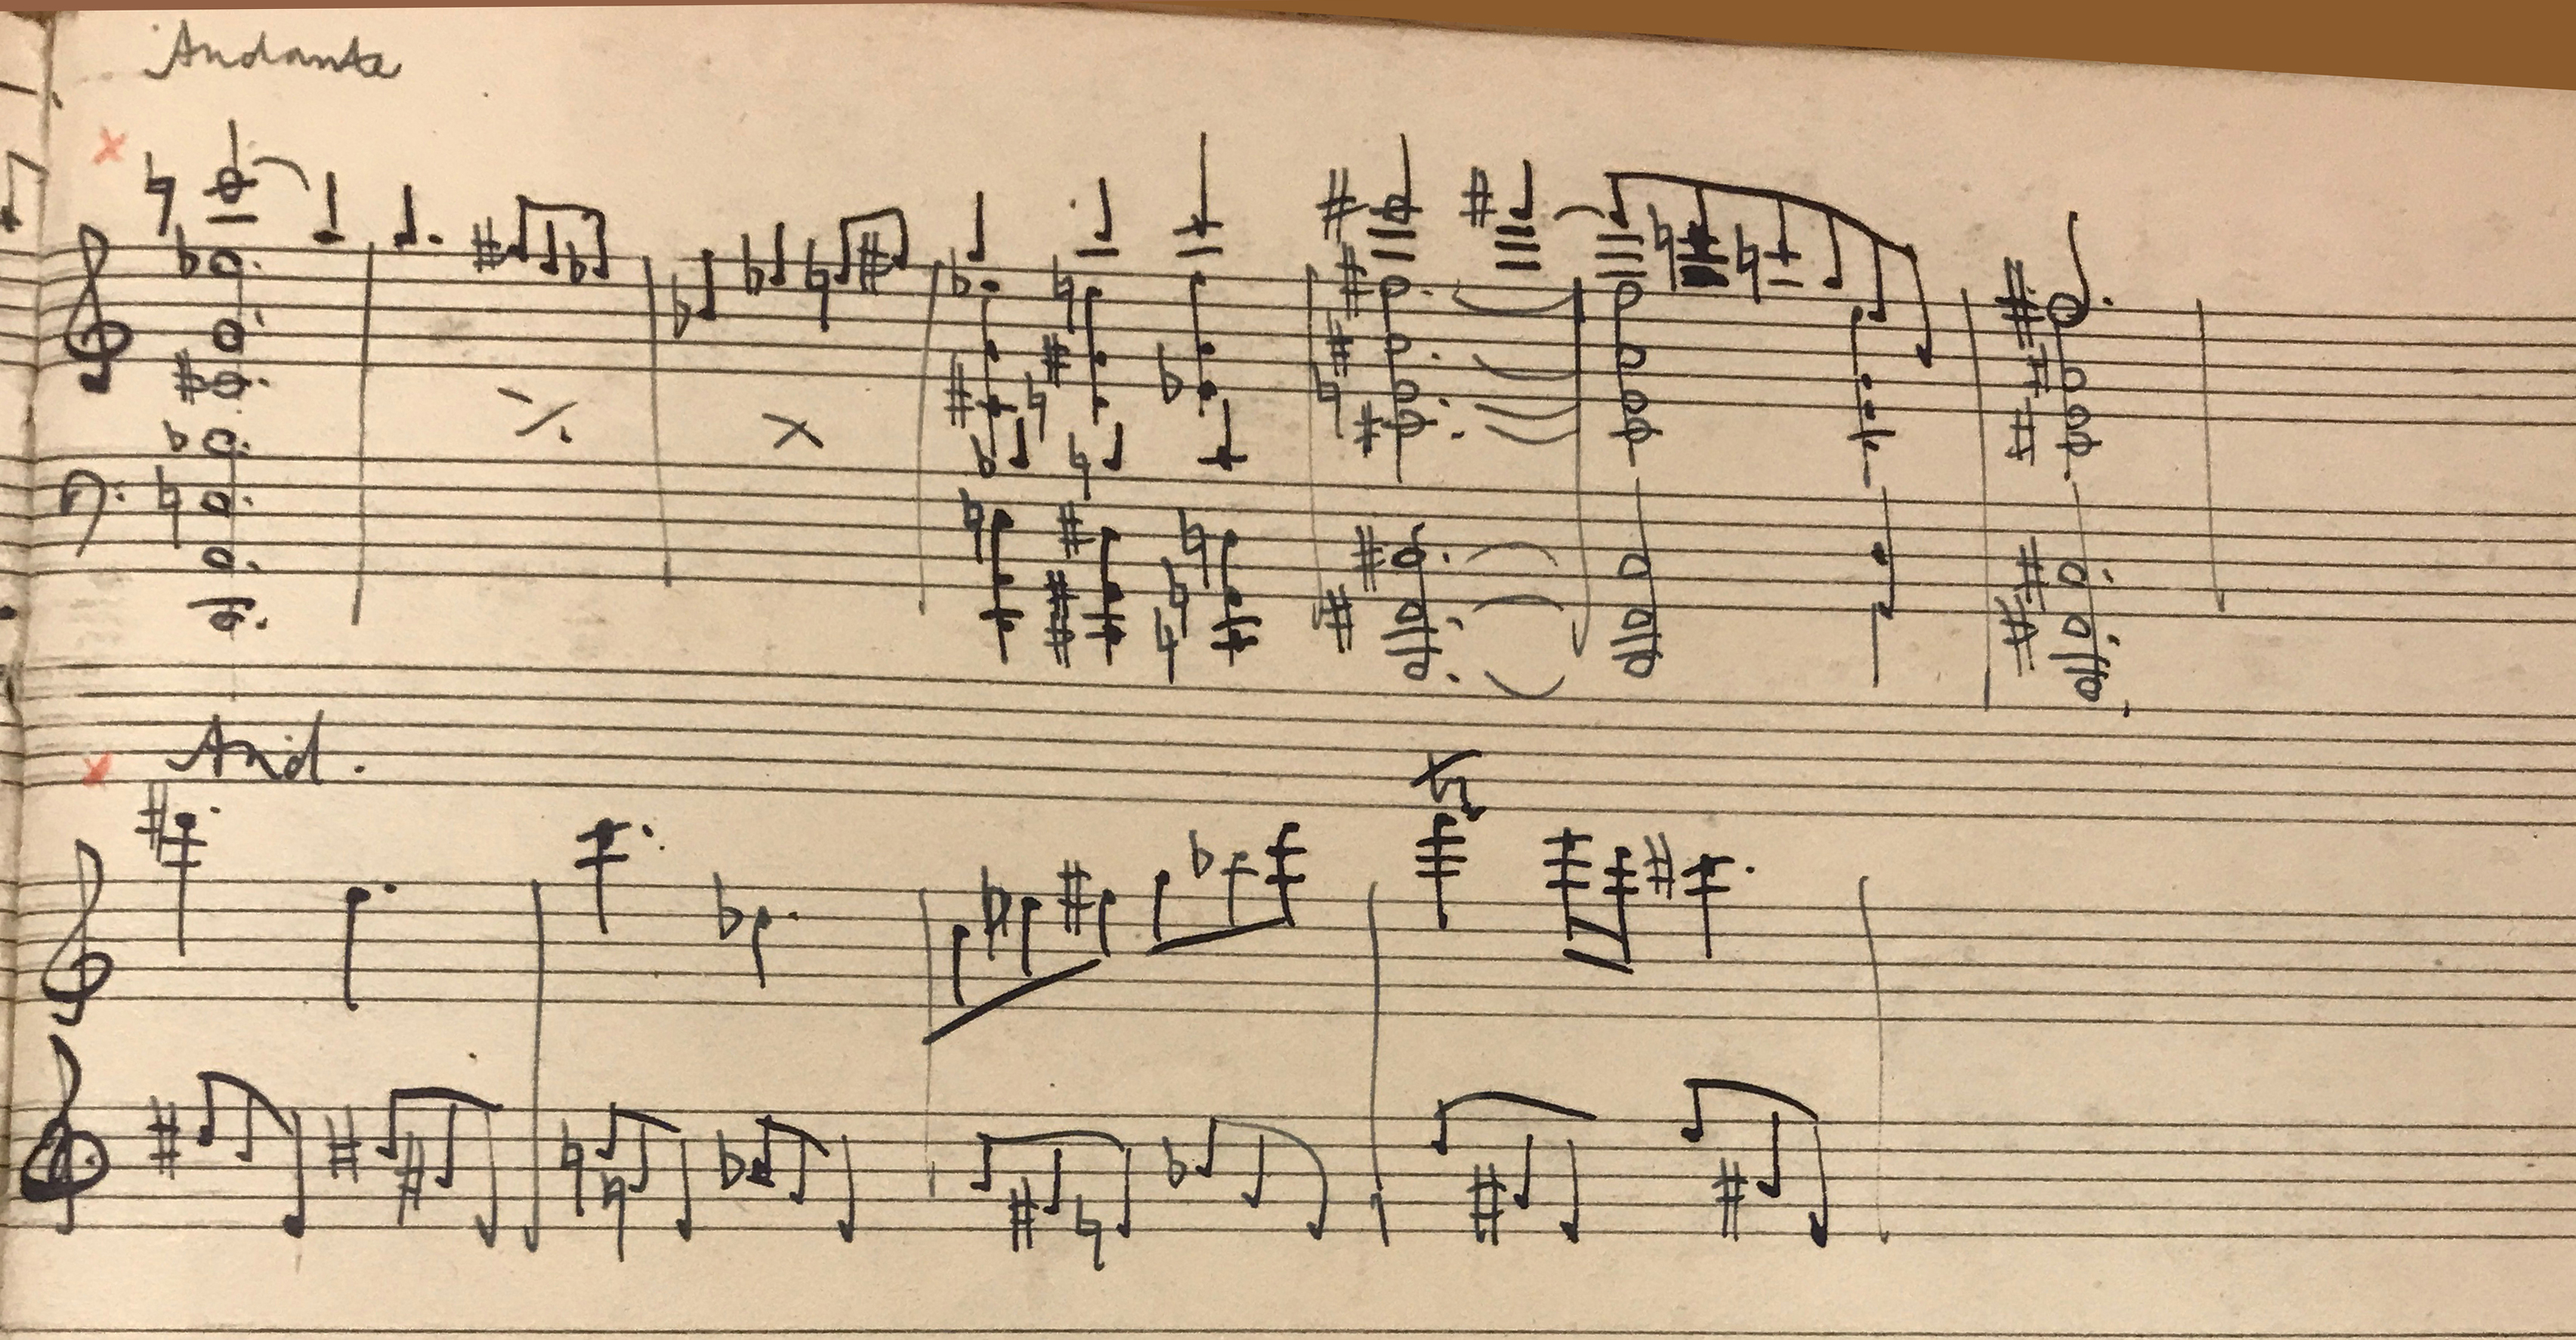 Andante
And.
tr